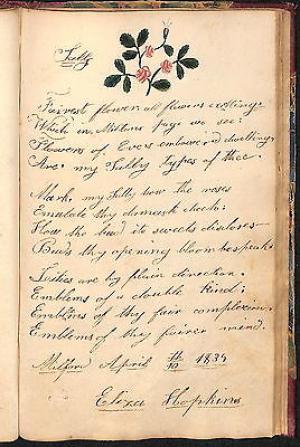 Sally
Fairest flower, all flowers excelling,
Which in Miltons page we see:
Flowers of Eves embowered dwelling
Are, my Sally types of thee.
Mark, my Sally how the roses
Emulate thy damask cheek:
How the bud its sweets discloses—
Buds thy opening bloom bespeak.
Lilies are by plain direction.
Emblems of a double kind;
Emblems of thy fair complexion,
Emblems of thy fairer mind.
Milford April 1839
Eliza Hopkins